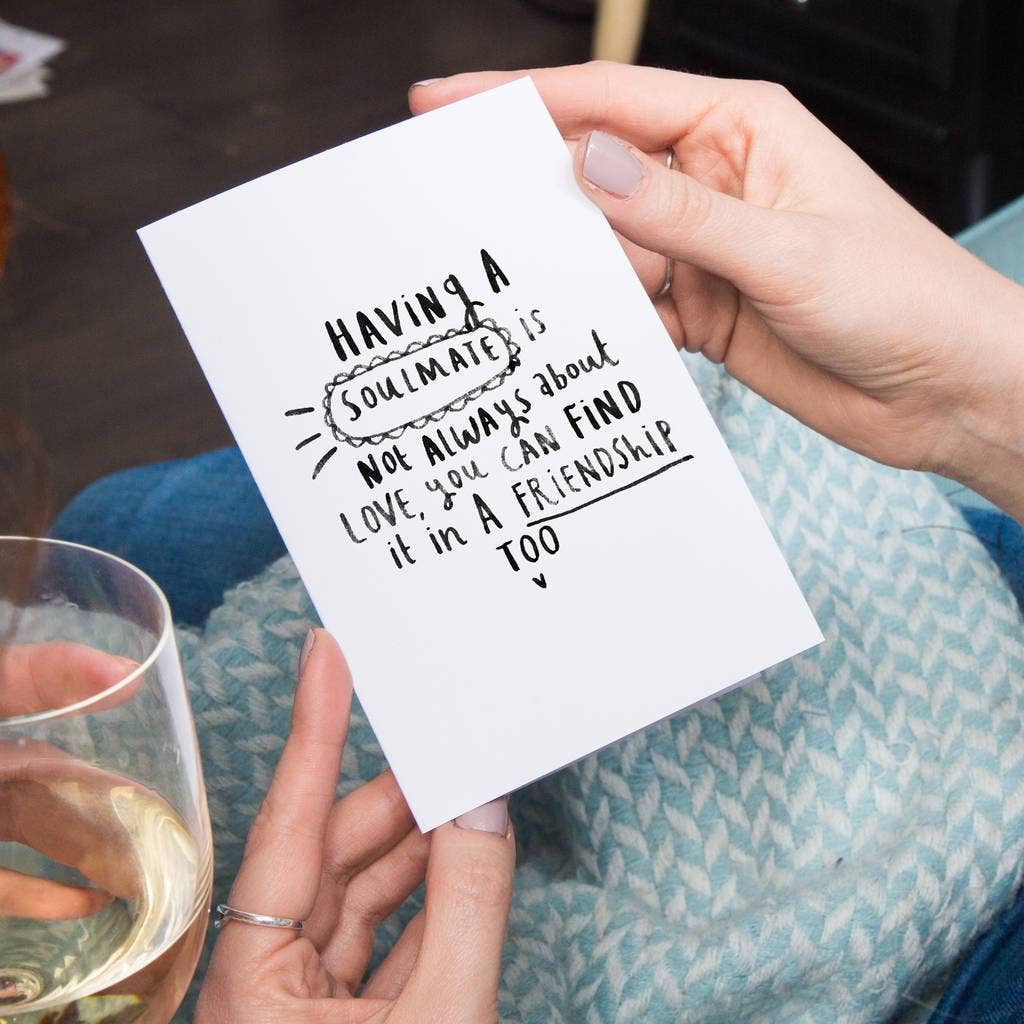 HAViNg A
SOULMATE is
NOt ALWAyS about
LOVE, you CAN FiND
it in A FRiENDShiP
TOO